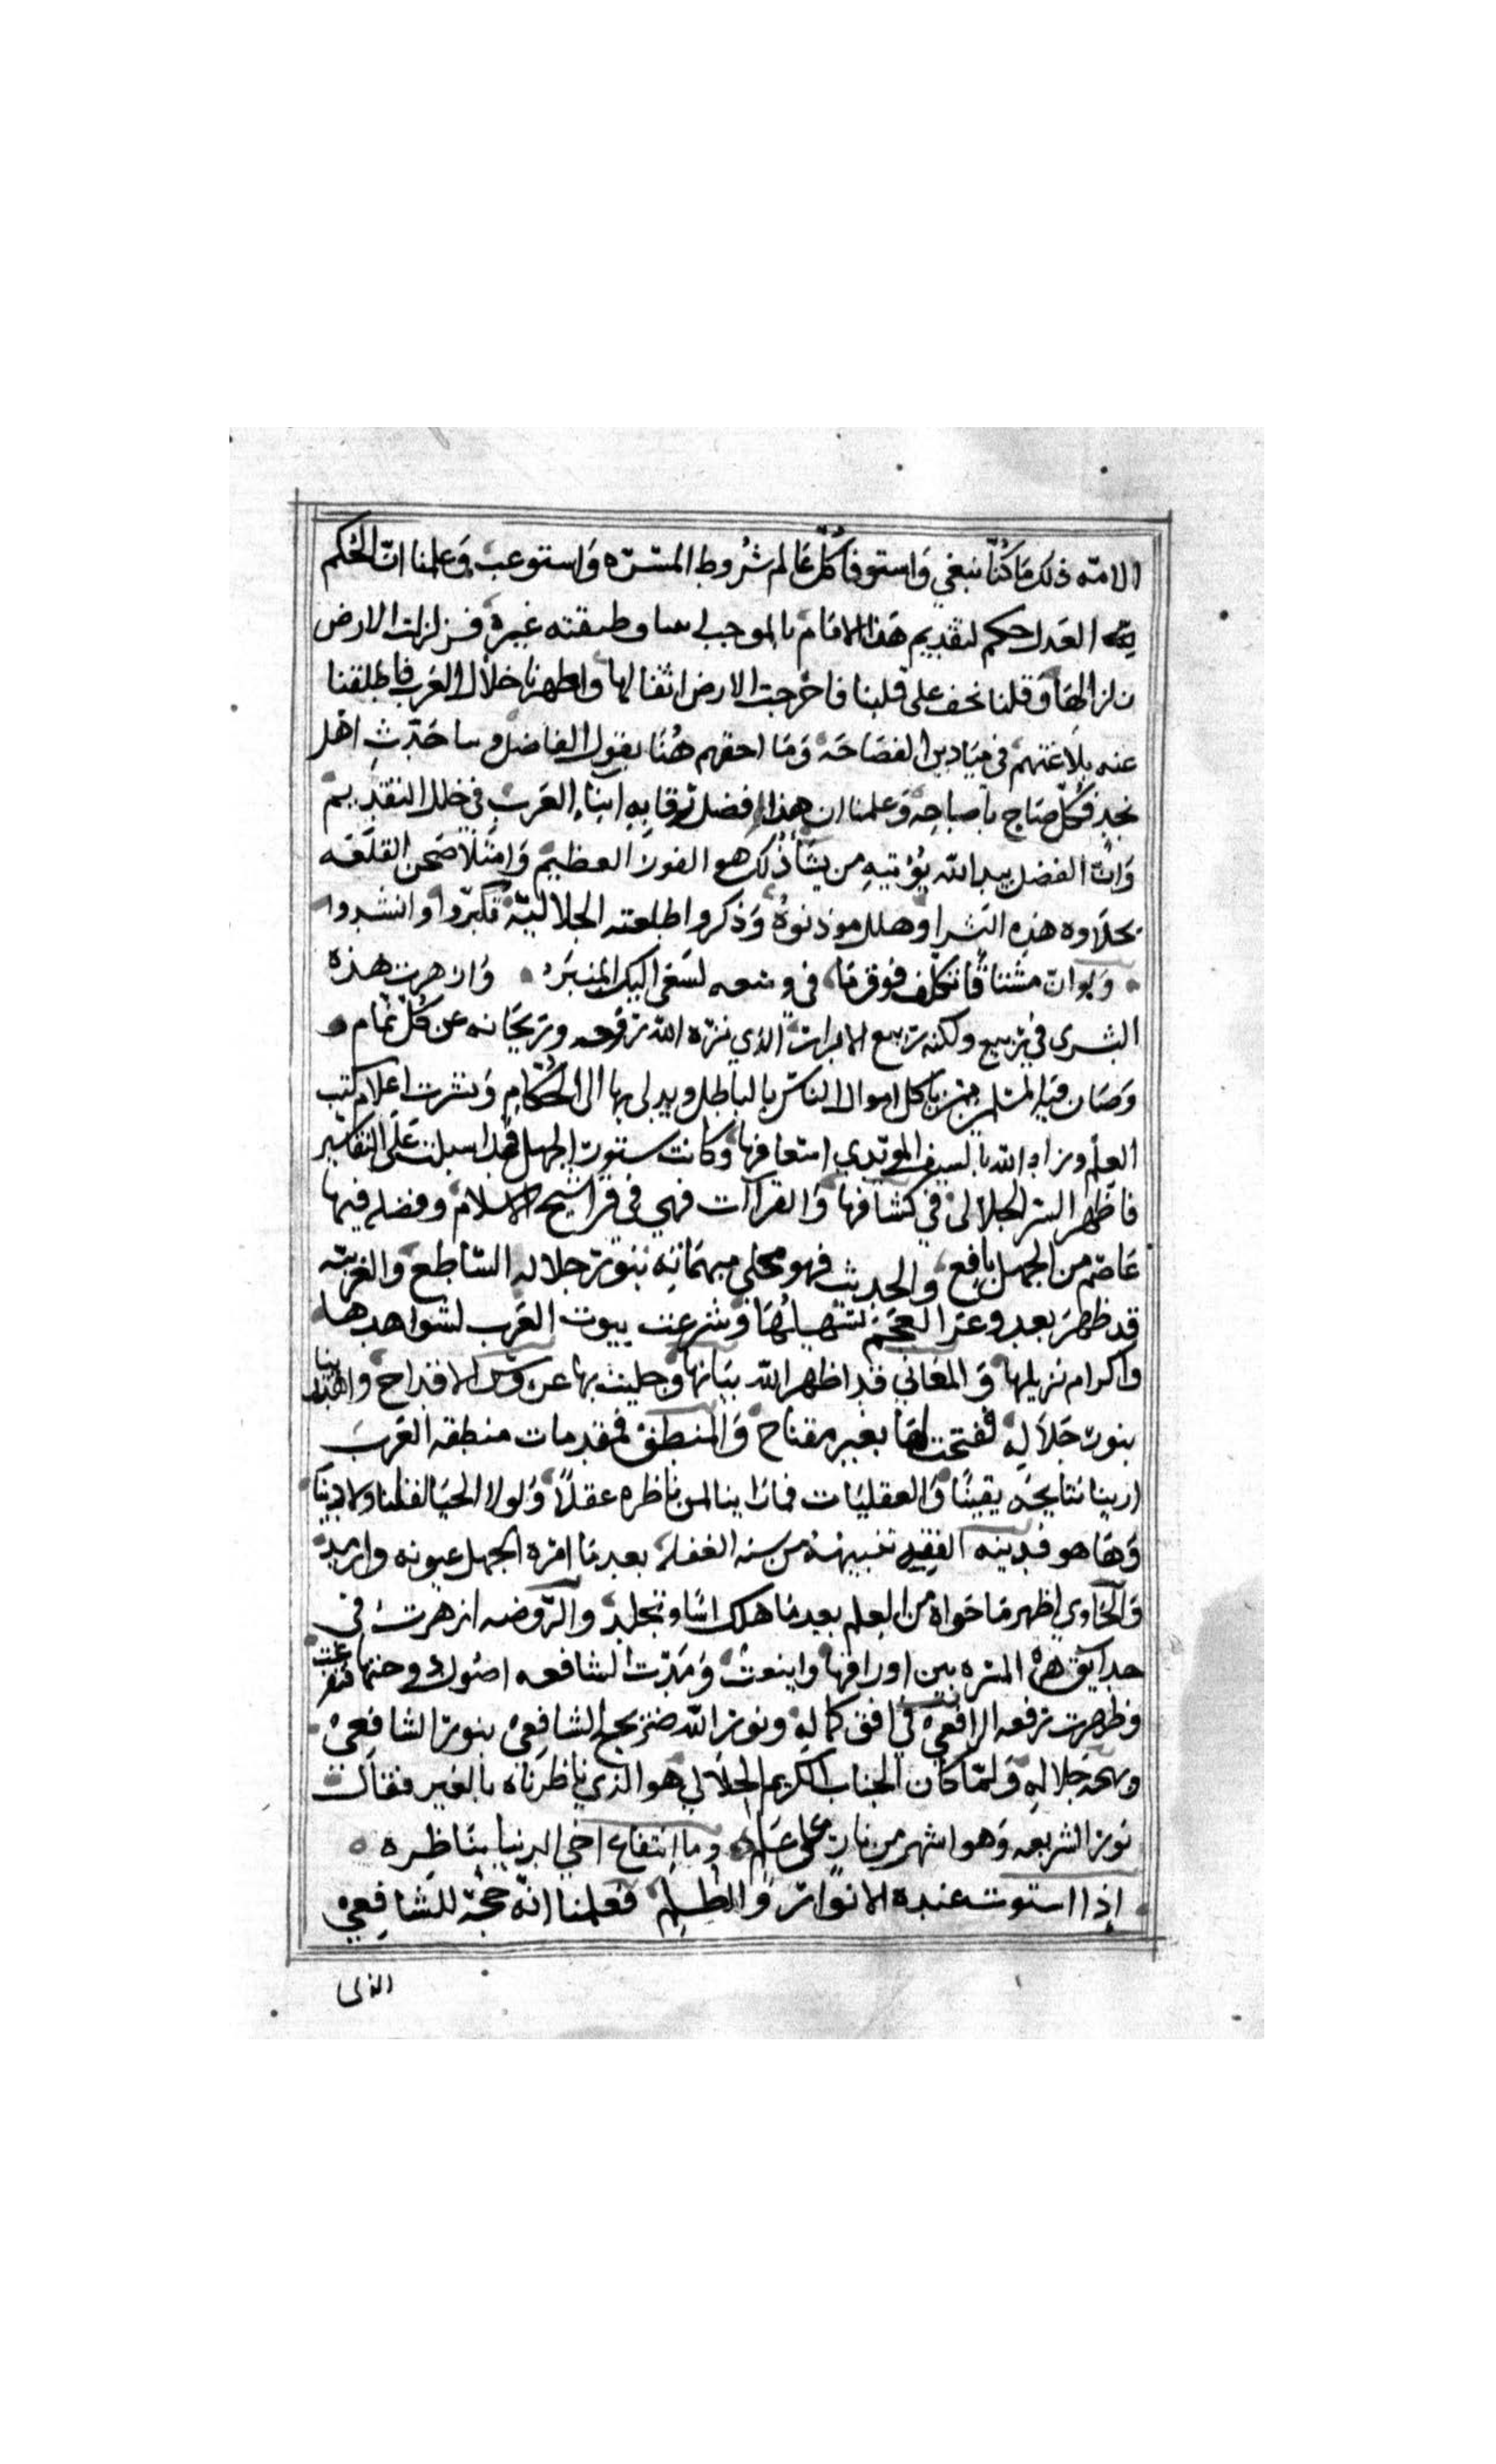 الامة ذلك مَا كُنّا نبغي وَاستوفا كلّ عَالم شُروط المسَرّه وَاستوعب وَعلمنا انّ الحُكم
لله العَدل حكم لتقديم هَذا الامَام بالموجب لى سا وطبقته غيره فزلزلت الارض
زلزالهَا وَقلنا نحف على قلبنا فاخرجت الارض اثقالها واظهرنا خلال العَرب فاطلقنا
عنه بلاغتهم في ميَادين الفصَاحَة وَمَا احقهم هُنَا بقول الفاضل وسا حَدّث اهْل
نجدٍ فكلّ صَاح باصباحه وَعلمنا ان هذا افضل ترقا بِهِ ابنَاء العَرب في خلل التقديم
وَانّ الفضل بيد اللّه يُؤتيهِ من يشَا ذلك هو الفوز العظيم وَامتلا صَحن القلعَه
بحلاوه هذِهِ البشرا وهلل موذنوهُ وَذكروا طلعته الجلاليّة فكبّروا وانشدوا
وَلو انّ مشتاقًا تكلّف فوق مَا في وسعه لسَعَى اليك المنبَر وَازهرت هذه
البشرى في ربيع ولكنه ربيع الابرار الذي نزّه اللّه روضه وريحَانه عن كُلّ نمّام
وَصَان فيه المسلمين ممّن ياكل اموال الناس بالباطل ويدلى بها الى الحُكّام وَنشرت اعلام كتب
العِلم وزاد اللّه بالسيف المويّدي اسعافها وكانت ستور الجهل قد اسبلت عَلى التفاسير
فاظهر السِرّ الجلالى في كشافها وَالقراآت فهي في قرا شيخ الاسلام وفضله فيها
عَاصم من الجهل نافع وَالحديث فهو محلى مبهمَاته بنور جلاله السّاطع وَالعَربيّه
قد ظهرَ بعد وعر العجم تسهيلُهَا وشرعت بيوت العَرب لشواهدها
وَاكرام نزيلها وَالمعَاني قد اظهر اللّه بيَانها وجليت بها عروس الافراح واهتدينا
بنور جَلالهِ ففتحت لهَا بغير مفتاح وَالمنطق فمقدمات منطقه العَربَ
ارينا نتايجَه يقينًا وَالعقليَات فمَا رَاينا لمن ناظره عقلاً وَلولا الحيَا لقلنا ولا دينًا
وَهَا هو قد ينبه الفقيه تنبيهه من سنه الغفله بعد مَا امره الجهل عيونه وارمد
وَالحَاوي اظهر مَا حَواه من العِلم بعد مَا هلك اسًا وتجلد وَالرّوضه ازهرت في
حدايق هذه المسره بين اوراقها واينعت وَمَدّت الشافعه اصُولها وحتها فتفرعت
وظهرت رفعه الرافعي في افق كمالهِ ونوّر اللّه ضريح الشافِعي بنور الشافِعي
وبهجه جَلالهِ وَلمّا كَان الجناب الكريم الجلالي هو الذي ناظرنَاه بالغير فقَال
نور الشريعه وَهو اشهر من نار على عَلم وما انتفاع اخي الدنيا بنَاظِره
اذا استوت عنده الانوار وَالظلم فعلمنا انّه حجّة للشافِعي
الذى